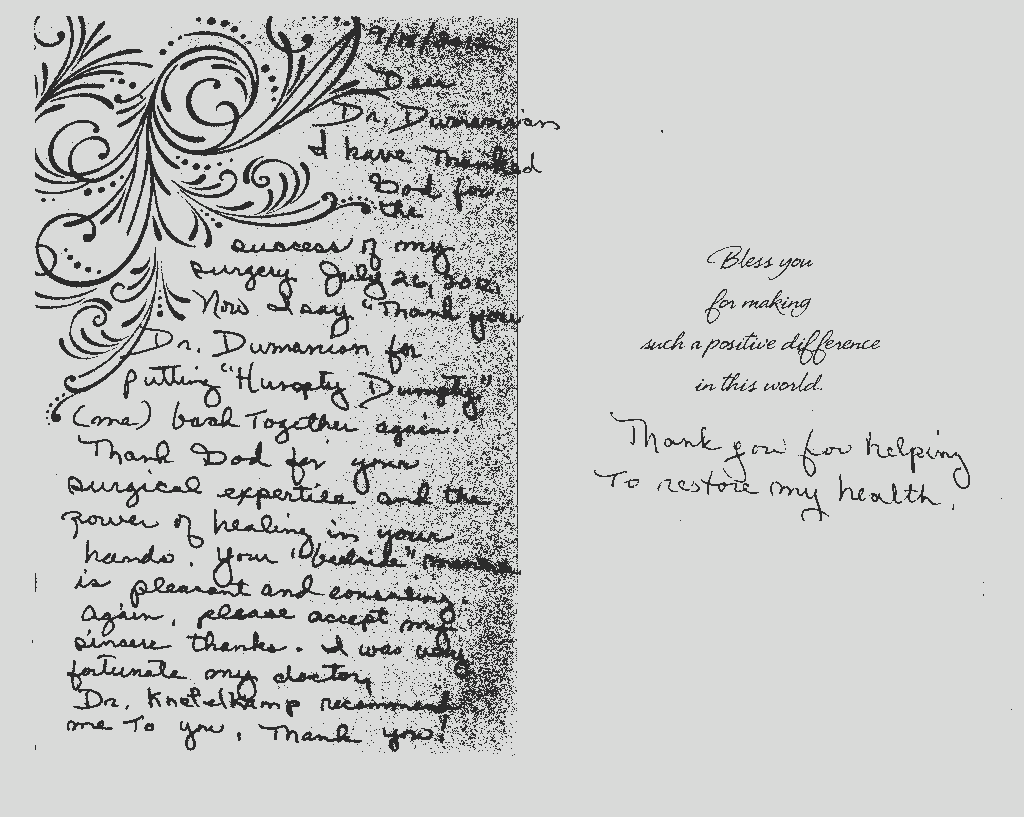 9/18/2012
Dear
Dr. Dumanian
I have thanked
God for
the
success of my
surgery July 26, 2012.
Now I say "Thank you
Dr. Dumanian for
putting "Humpty Dumpty"
(me) back Together again.
Thank God for your
surgical expertise and the
power of healing in your
hands. Your "bedside" manner
is pleasant and consoling.
Again, please accept my
sincere thanks. I was very
fortunate my doctor,
Dr. Knefelkamp recommend
me To you. Thank you!
Bless you
for making
such a positive difference
in this world.
Thank you for helping
To restore my health.